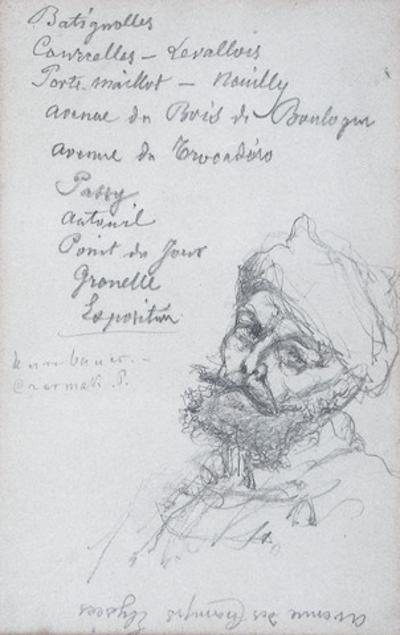 Batignolles
Courcelles – Levallois
Porte-maillot – Neuilly
avenue du Bois de Boulogne
avenue du Trocadéro
Passy
Auteuil
Point du Jour
Grenelle
Exposition
avenue des Champs Elysées